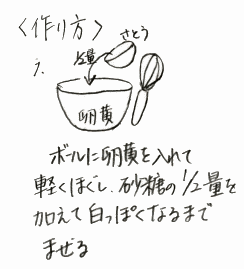 〈作り方〉
1.
さとう
1/2量
卵黄
ボールに卵黄を入れて
軽くほぐし、砂糖の1/2量を
加えて白っぽくなるまで
まぜる